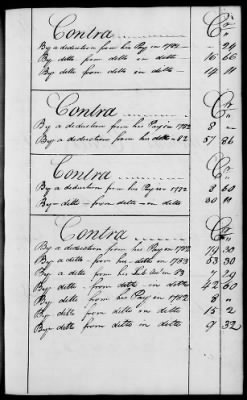 Contra Cr
By a deduction from his Pay in 1781 " 24
By ditto from ditto in ditto 16 66
By ditto from ditto in ditto 14 11
Contra Cr
By a deduction from his Pay in 1782 8 "
By a deductions from his ditto 82 57 86
Contra Cr
By a deduction from his Pay in 1782 8 60
By ditto from ditto in ditto 30 11
Contra Cr
By a deduction from his Pay in 1782 14 30
By a ditto from his ditto in 1783 53 30
By a ditto from his in 83 7 29
By ditto from ditto in ditto 42 60
By ditto from his Pay in 1782 8 "
By ditto from ditto in ditto 15 2
By ditto from ditto in ditto 9 32